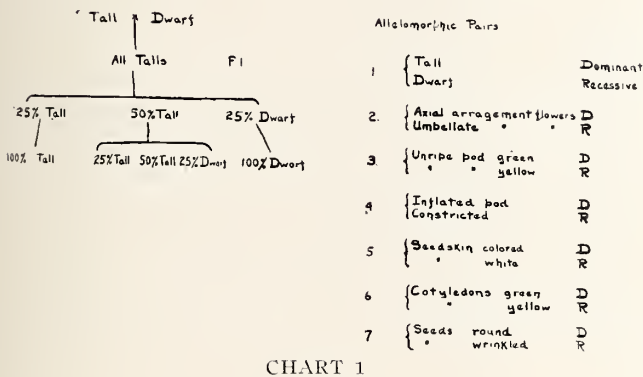 Tall × Dwarf
All Talls F1
25% Tall 50% Tall 25% Dwarf
100% Tall 25% Tall 50% Tall 25% Dwarf 100% Dwarf
Allelomorphic Pairs
1 { Tall Dominant
Dwarf Recessive
2. { Axial arragement flowers D
Umbellate " " R
3. { Unripe pod green D
" " yellow R
4 { Inflated pod D
Constricted R
5 { Seedskin colored D
" white R
6 { Cotyledons green D
" yellow R
7 { Seeds round D
" wrinkled R
CHART 1